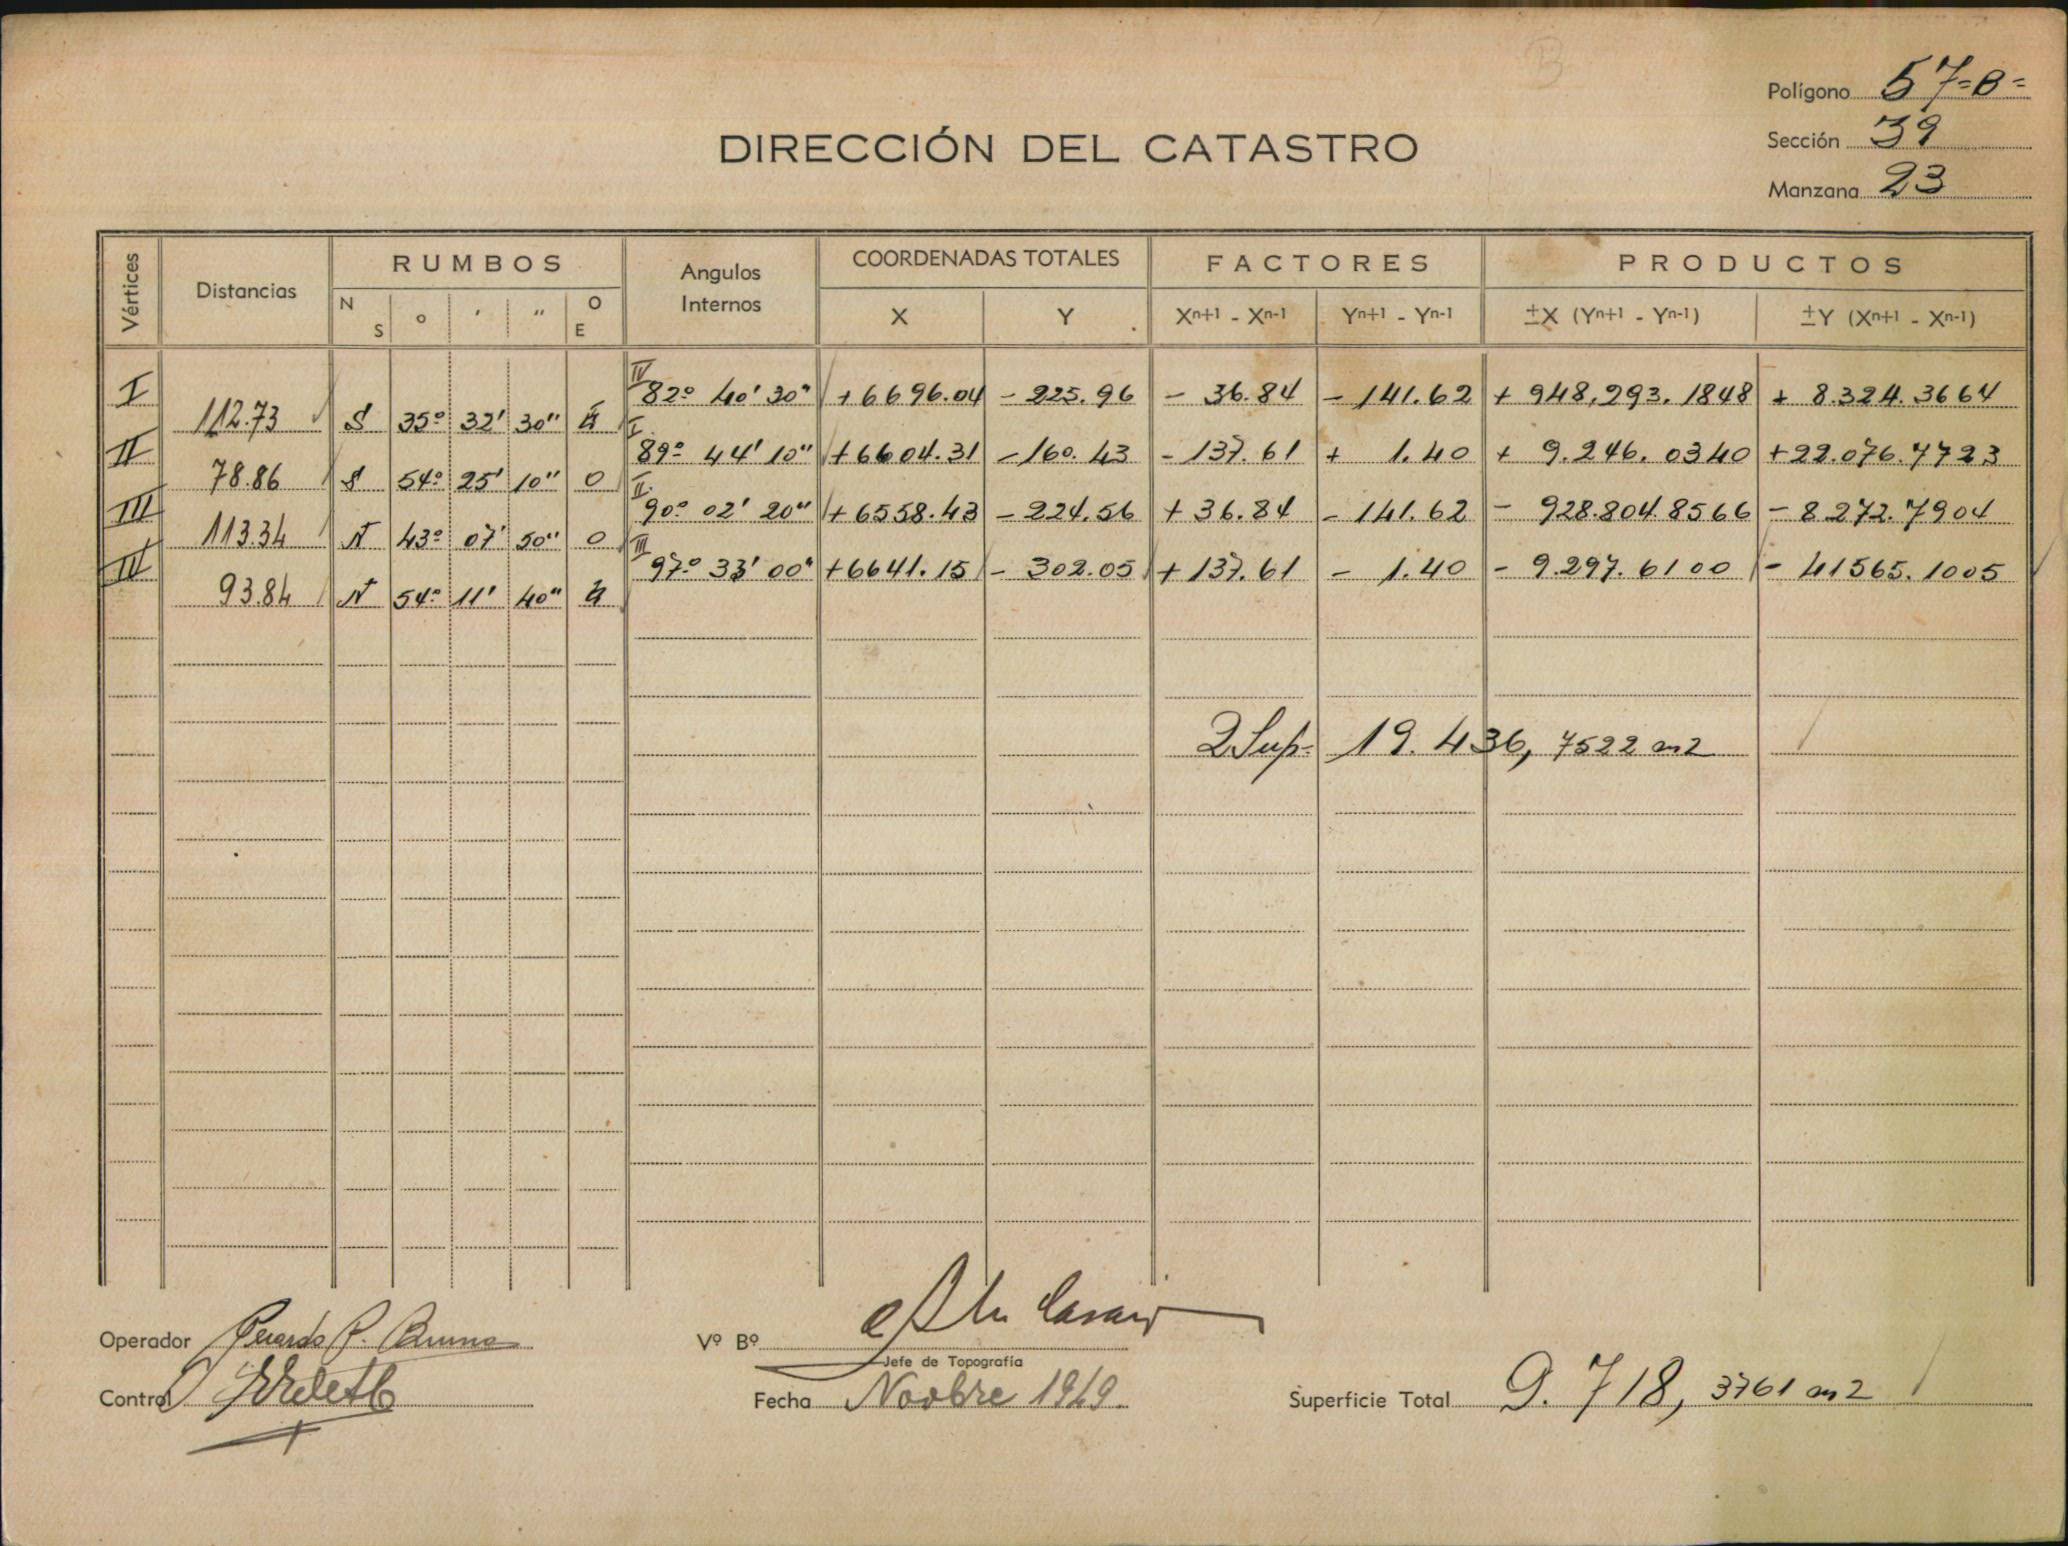 Polígono 57=B=
DIRECCIÓN DEL CATASTRO
Sección 39
Manzana 23
Vértices Distancias RUMBOS Angulos Internos COORDENADAS TOTALES FACTORES PRODUCTOS
N S o ' " O E X Y Xn+1 - Xn-1 Yn+1 - Yn-1 ±X (Yn+1 - Yn-1) ±Y (Xn+1 - Xn-1)
I IV 82° 40' 30" +6696.04 - 225.96 - 36.84 - 141.62 + 948,293.1848 + 8.324.3664
112.73 S 35° 32' 30"
II I 89° 44' 10" +6604.31 -160.43 - 137.61 + 1.40 + 9.246.0340 +22.076.7723
78.86 S 54° 25' 10" O
III II 90° 02' 20" +6558.43 - 224.56 + 36.84 - 141.62 - 928.804.8566 - 8.272.7904
113.34 N 43° 07' 50" O
IV III 97° 33' 00" +6641.15 - 302.05 + 137.61 - 1.40 - 9.297.6100 - 41565.1005
93.84 N 54° 11' 40"
2Sup= 19.436,7522 m2
Operador Gerardo P. Bruno
Vº Bº
Jefe de Topografía
Control
Fecha Novbre 1949.
Superficie Total 9.718,3761 m2